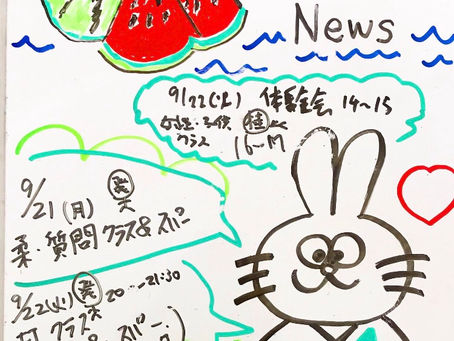 News
9/22(火) 体験会 14〜15
女性・子供 桂
クラス 16〜M
9/21(月) 天
柔・質問 クラス& スパー
9/22(火) 20〜21:30
クラス
スパー